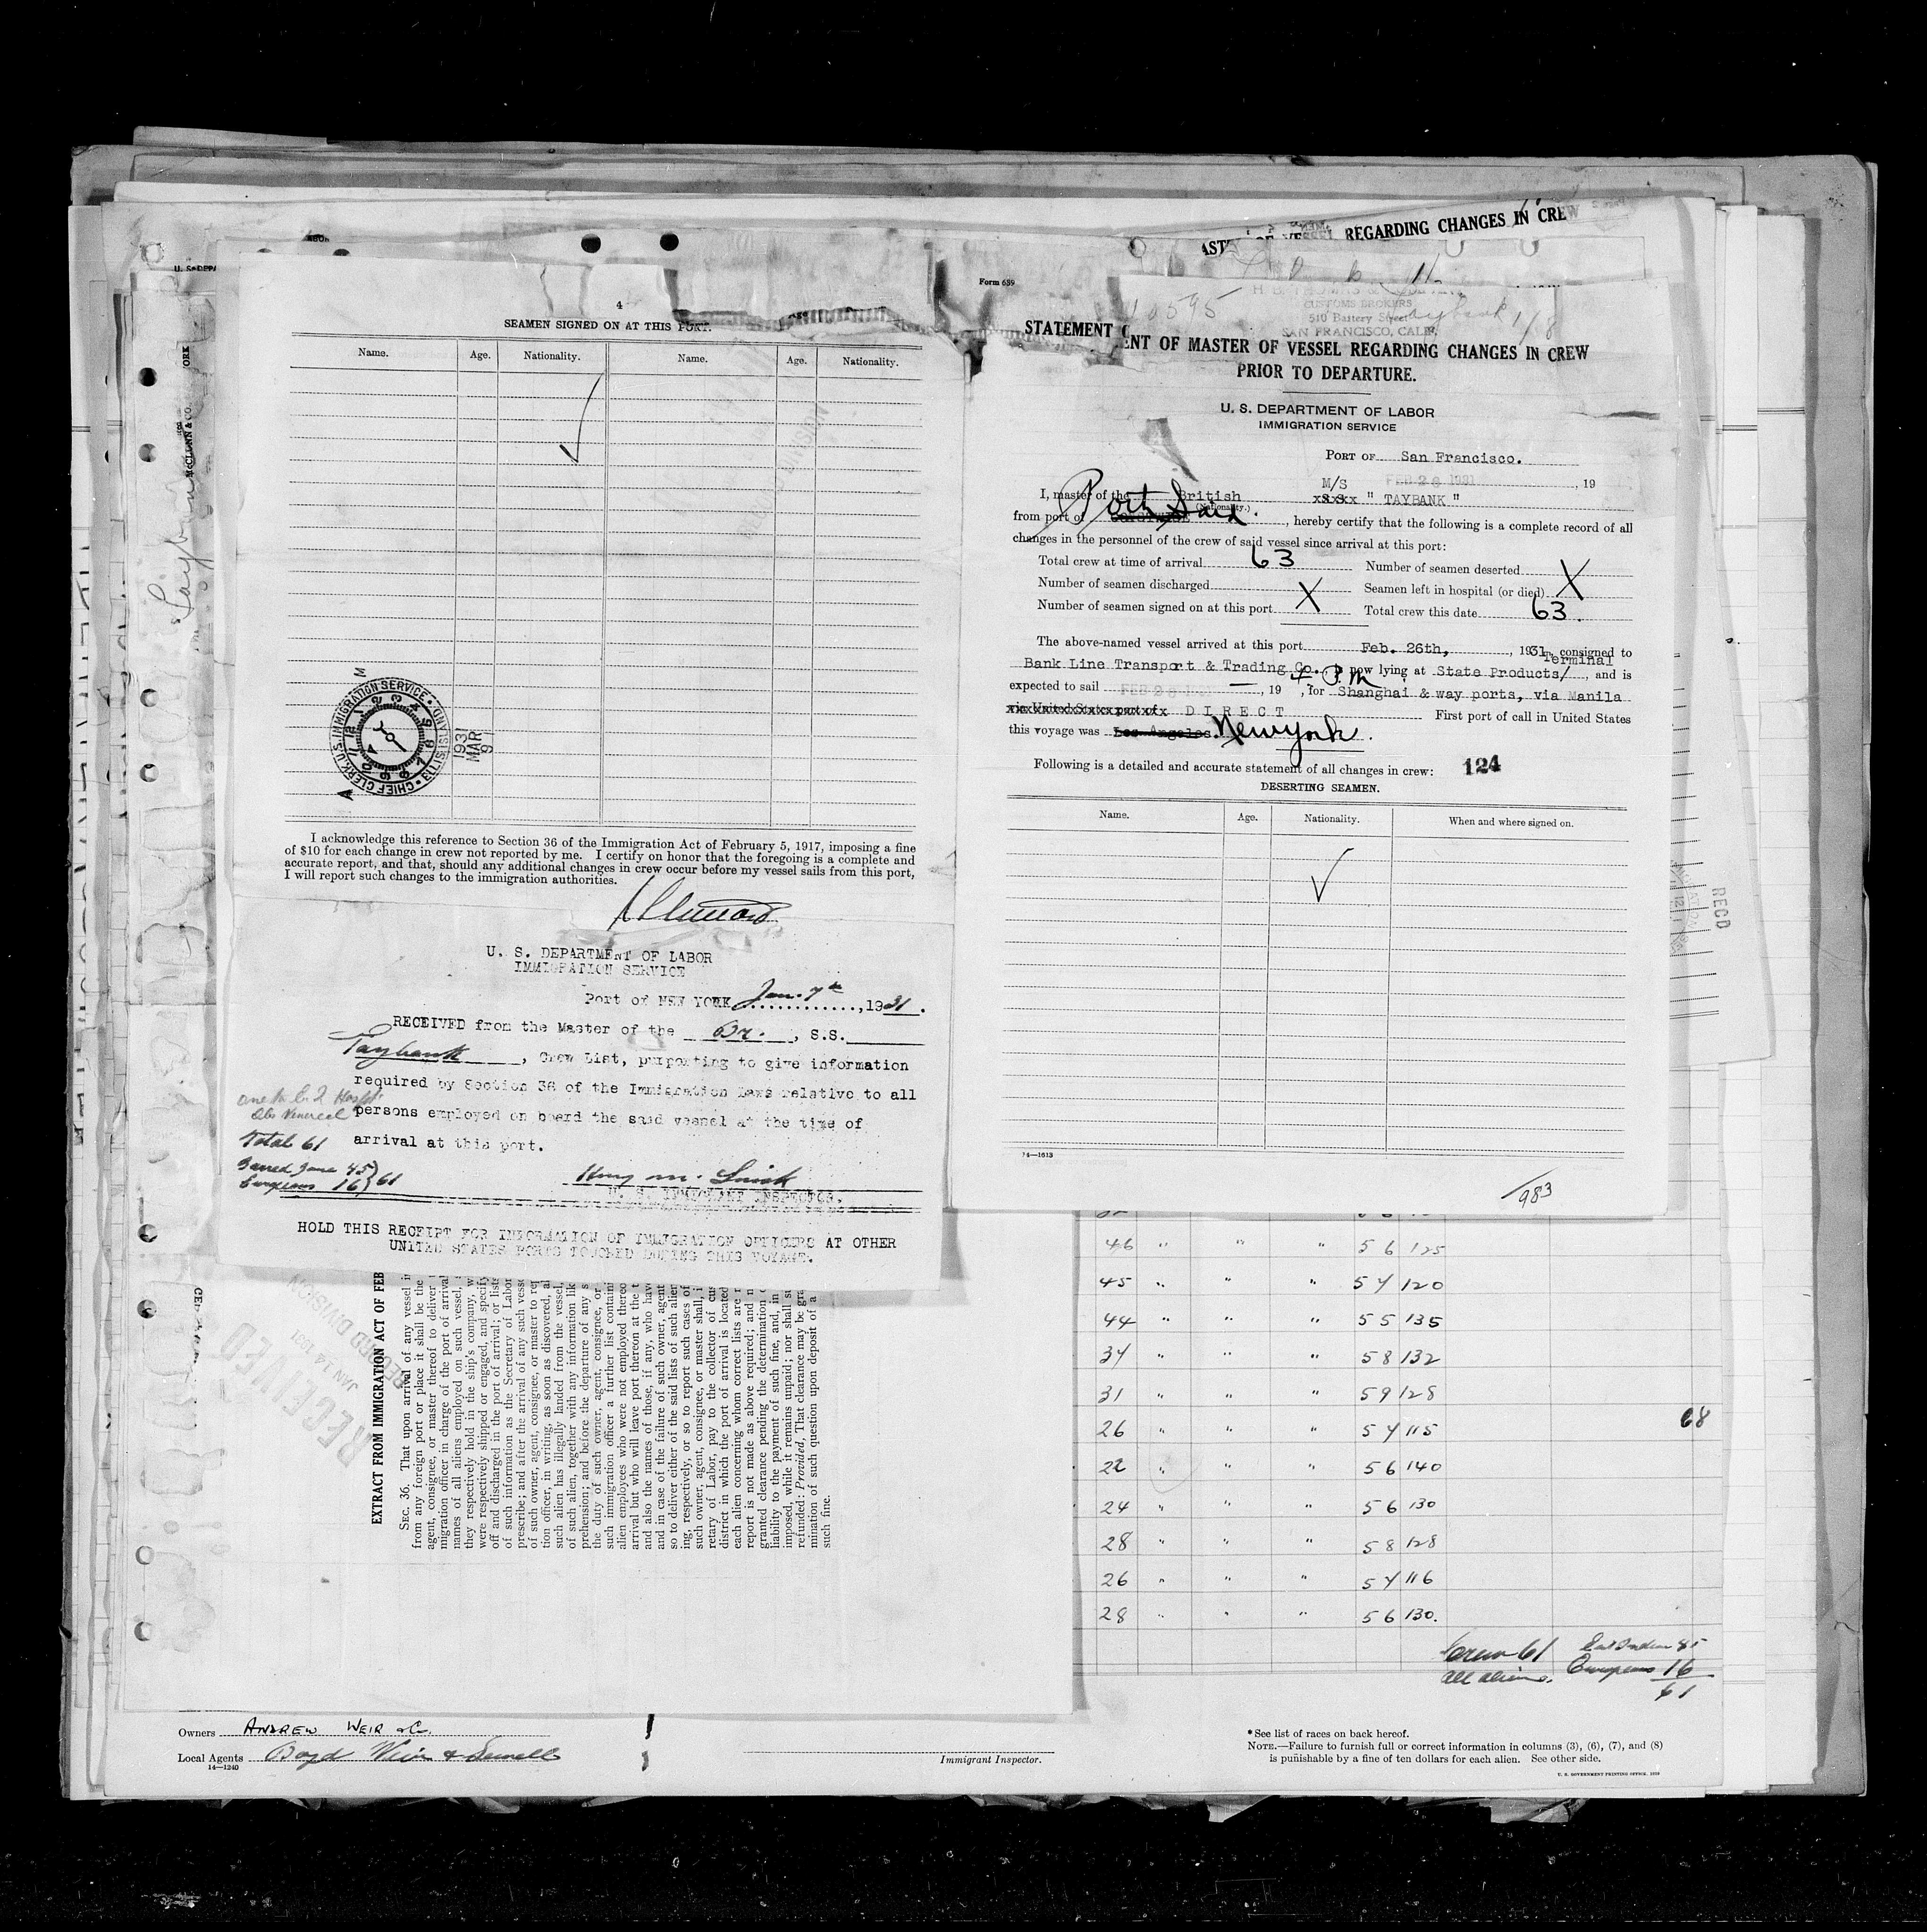 4
SEAMEN SIGNED ON AT THIS PORT.
Name. Age. Nationality. Name. Age. Nationality.
CHIEF CLERK U.S. IMMIGRATION SERVICE
1931 MAR 9
I acknowledge this reference to Section 36 of the Immigration Act of February 5, 1917, imposing a fine
of $10 for each change in crew not reported by me. I certify on honor that the foregoing is a complete and
accurate report, and that, should any additional changes in crew occur before my vessel sails from this port,
I will report such changes to the immigration authorities.
U. S. DEPARTMENT OF LABOR
IMMIGRATION SERVICE
Port of NEW YORK Jan. 7th, 1931.
RECEIVED from the Master of the Br., S.S.
Taybank, Crew List, purporting to give information
required by Section 36 of the Immigration Laws relative to all
persons employed on board the said vessel at the time of
arrival at this port.
Total 61
45
Europeans 16 } 61
U. S. IMMIGRANT INSPECTOR.
HOLD THIS RECEIPT FOR INFORMATION OF IMMIGRATION OFFICERS AT OTHER
UNITED STATES PORTS TOUCHED DURING THIS VOYAGE.
Form 689
REGARDING CHANGES IN CREW
10595
CUSTOMS BROKERS
510 Battery Street
SAN FRANCISCO, CALIF.
STATEMENT
ENT OF MASTER OF VESSEL REGARDING CHANGES IN CREW
PRIOR TO DEPARTURE.
U. S. DEPARTMENT OF LABOR
IMMIGRATION SERVICE
PORT OF San Francisco.
FEB 26 1931, 19
I, master of the British M/S " TAYBANK "
(Nationality.)
from port of Port Said, hereby certify that the following is a complete record of all
changes in the personnel of the crew of said vessel since arrival at this port:
Total crew at time of arrival 63 Number of seamen deserted X
Number of seamen discharged X Seamen left in hospital (or died)
Number of seamen signed on at this port Total crew this date 63.
The above-named vessel arrived at this port Feb. 26th, 1931, consigned to
Bank Line Transport & Trading Co. now lying at State Products/ Terminal, and is
expected to sail FEB 26, 19, for Shanghai & way ports, via Manila
DIRECT First port of call in United States
this voyage was Los Angeles. New York.
Following is a detailed and accurate statement of all changes in crew: 124
DESERTING SEAMEN.
Name. Age. Nationality. When and where signed on.
14—1613
1983
RECD
EXTRACT FROM IMMIGRATION ACT OF FEB
SEC. 36. That upon arrival of any vessel
from any foreign port or place it shall be the
agent, consignee, or master thereof to deliver
migration officer in charge of the port of arrival
names of all aliens employed on such vessel,
they respectively hold in the ship's company,
were respectively shipped or engaged, and specify
off and discharged in the port of arrival; or
of such information as the Secretary of Labor
prescribe; and after the arrival of any such
of such owner, agent, consignee, or master to
tion officer, in writing, as soon as discovered,
such alien has illegally landed from the vessel,
of such alien, together with any information
prehension; and before the departure of any
the duty of such owner, agent, consignee, or
such immigration officer a further list
alien employees who were not employed
arrival but who will leave port thereon at the
and also the names of those, if any, who
and in case of the failure of such owner, agent
so to deliver either of the said lists of such
ing, respectively, or so to report such cases of
such owner, agent, consignee, or master shall,
retary of Labor, pay to the collector of
district in which the port of arrival is located
each alien concerning whom correct lists are
report is not made as above required; and
granted clearance pending the determination
liability to the payment of such fine, and, in
imposed, while it remains unpaid; nor shall
refunded: Provided, That clearance may be
mination of such question upon deposit of a
such fine.
RECEIVED
JAN 14 1931
RECORD DIVISION
46 " " " 5 6 125
45 " " " 5 4 120
44 " " " 5 5 135
34 " " " 5 8 132
31 " " " 5 9 128
26 " " " 5 4 115
22 " " " 5 6 140
24 " " " 5 6 130
28 " " " 5 8 128
26 " " " 5 4 116
28 " " " 5 6 130.
68
Crew 61
all aliens.
East Indian 45
Europeans 16
61
Owners ANDREW WEIR & Co.
Local Agents Boyd Weir & Sewell
14—1240
Immigrant Inspector.
*See list of races on back hereof.
NOTE.—Failure to furnish full or correct information in columns (3), (6), (7), and (8)
is punishable by a fine of ten dollars for each alien. See other side.
U. S. GOVERNMENT PRINTING OFFICE